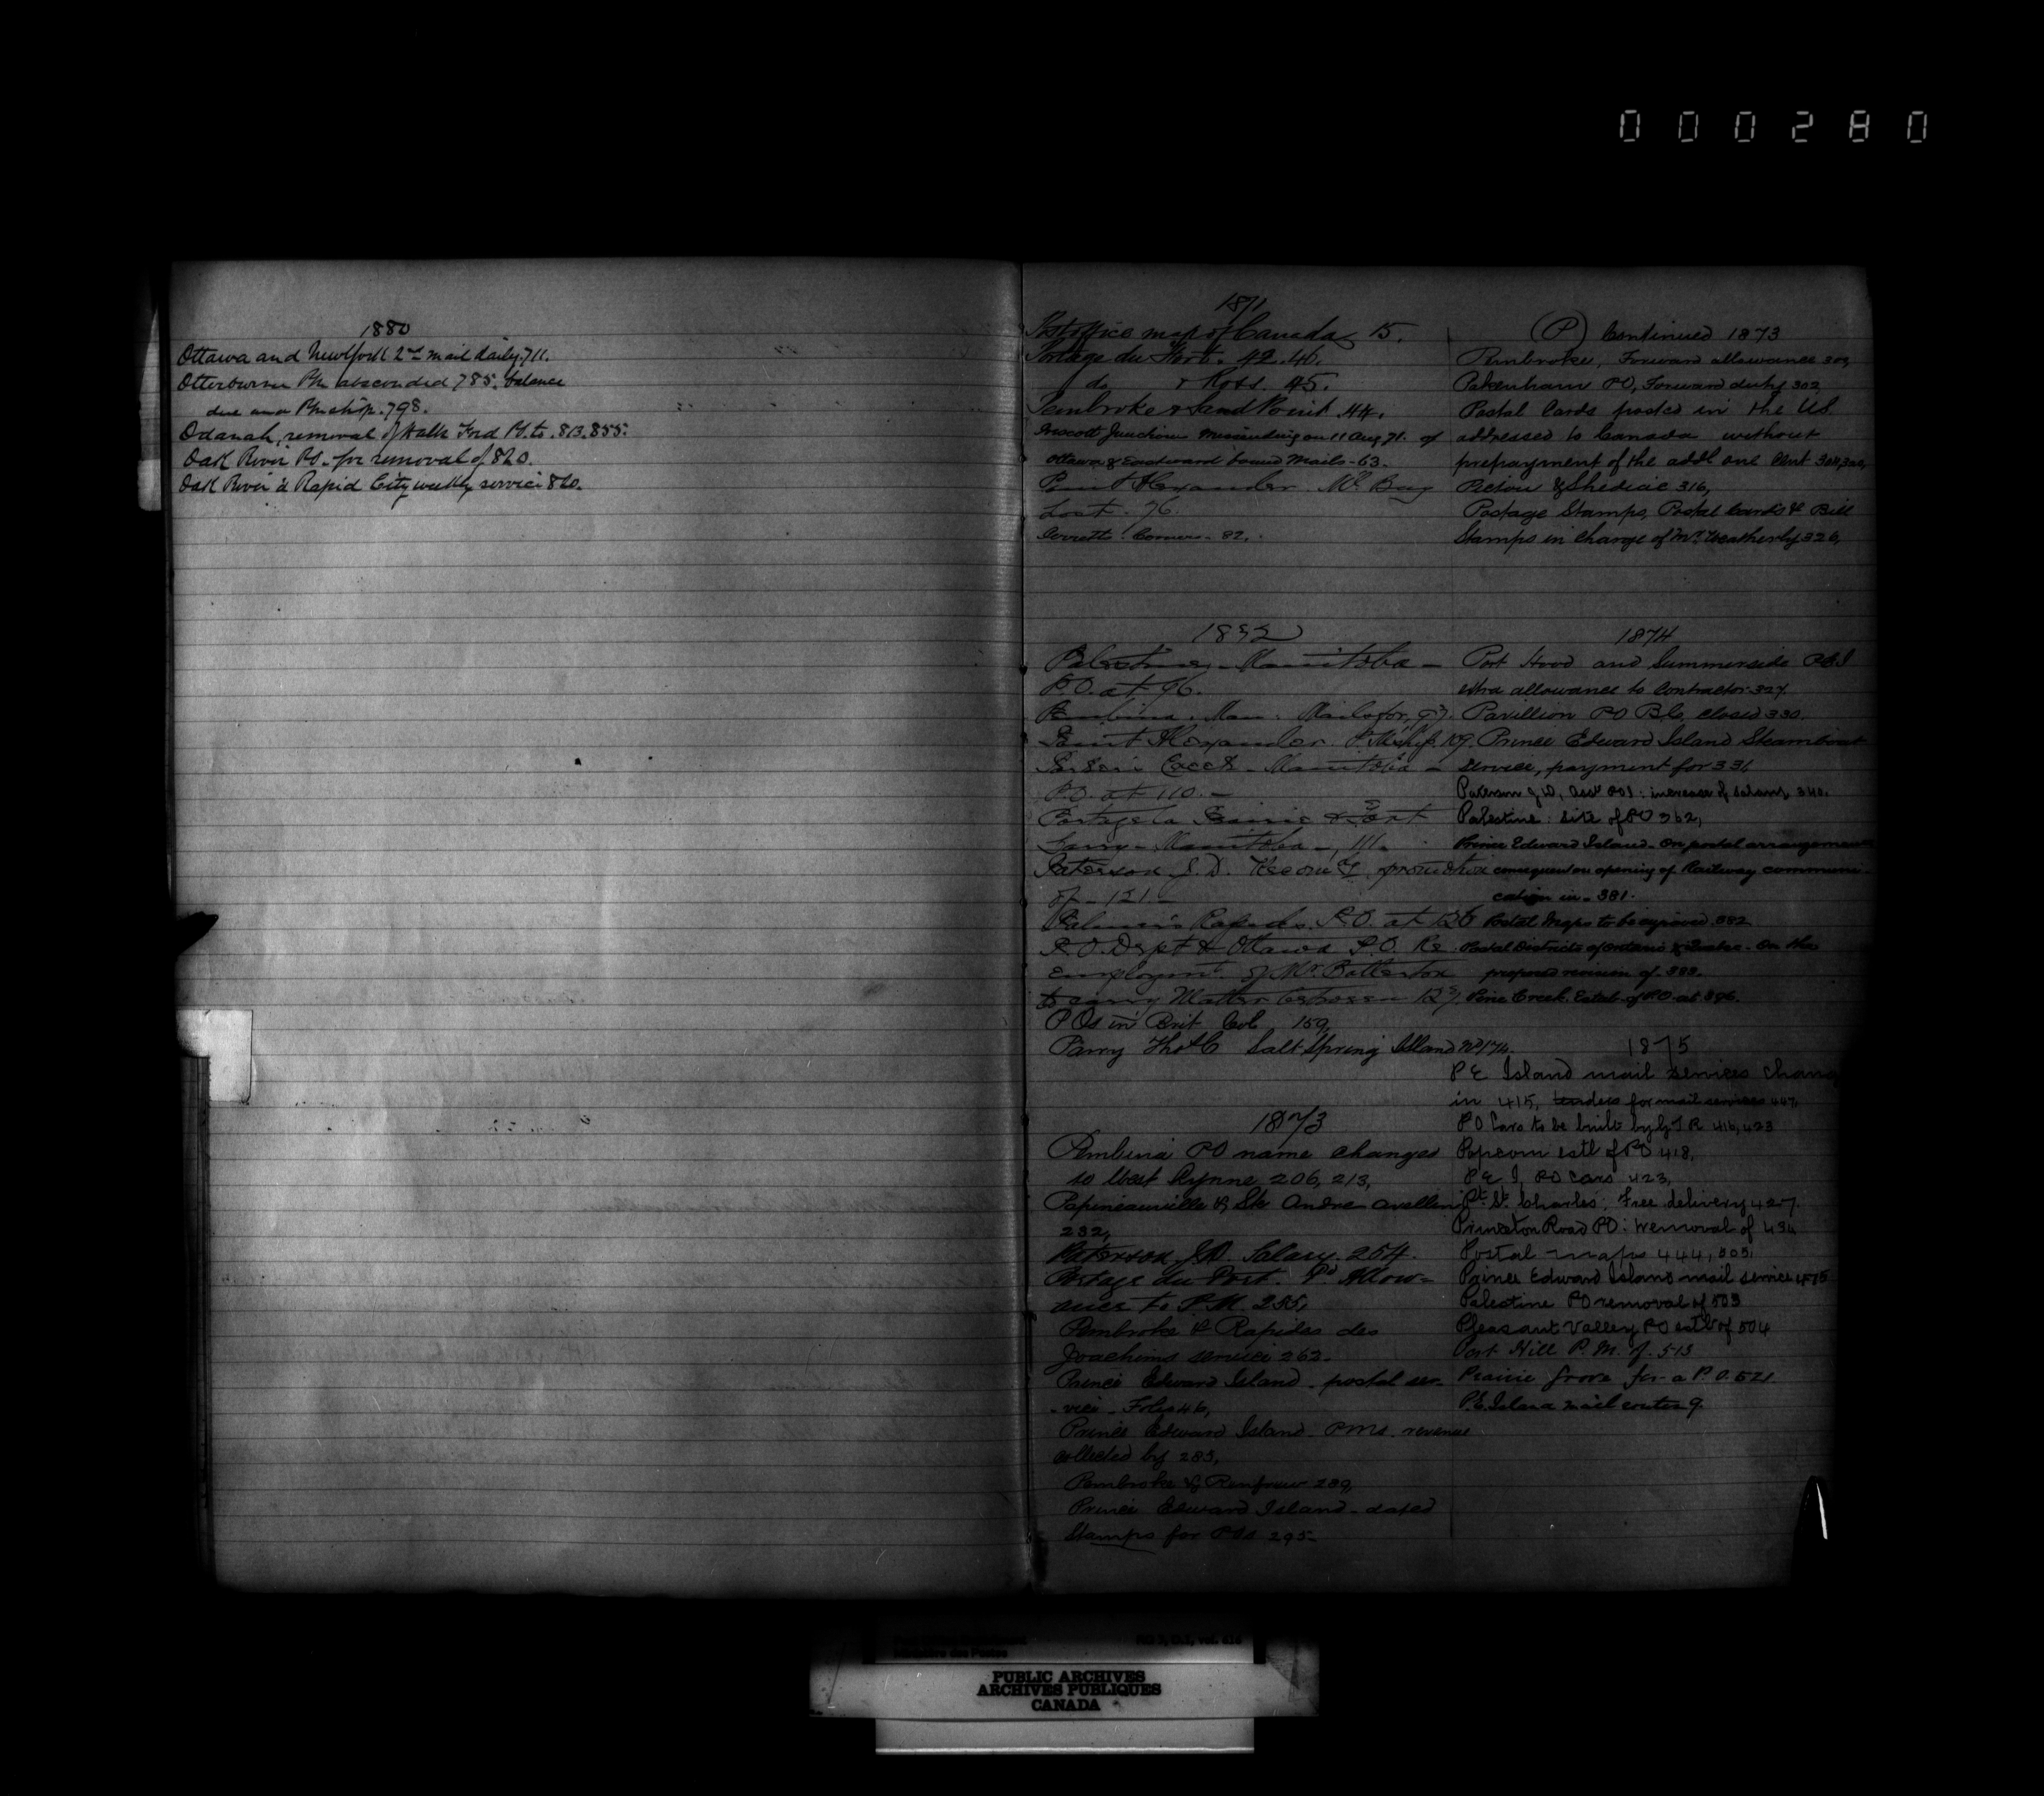 000280
1880
Ottawa and New York 2nd mail daily. 711.
Otterburne PM absconded 785. balance
due under PMship. 798.
Odanah, removal of Halls Ford PO. to. 813. 855.
Oak River PO. for removal of 820.
Oak River & Rapid City weekly service 820.
1871
Post office map of Canada, 15.
Portage du Fort. 42. 46.
do & Ross. 45.
Pembroke & Sand Point. 44.
Prescott Junction Missending on 11 Aug 71. of
Ottawa & Eastward bound Mails - 63.
Point Alexander. Ml Bag
Lost - 76.
Corners - 82.
1872
Palestine, - Manitoba -
P.O. at 96.
Pembina. Man. Mails for, 97.
Point Alexander. P.Mship. 109.
Manitoba -
P.O. at 110. -
Portage la Prairie & Fort
Garry - Manitoba -, 111.
Paterson J. D. promotion
of - 121 -
Palmer's Rapids. P.O. at 126
P.O. Dept & Ottawa P.O. Re
employment of Mr. Batterton
to carry Matter between - 127.
P Os in Brit Col 159,
Parry Thos C Salt Spring Island No 174.
1873
Pembina PO name changed
to West Lynne 206, 213,
Papineauville & Ste Andre Avellin
232,
Paterson J.D. Salary. 254.
Portage du Fort. Fd Allow=
ances to P.M. 255,
Pembroke & Rapides des
Joachims service 262.
Prince Edward Island - postal ser-
- vice - Folio 46,
Prince Edward Island - PMs. revenue
collected by 285,
Pembroke & Renfrew 289,
Prince Edward Island - dated
Stamps for POs 295-
(P) Continued 1873
Pembroke, Forward allowance 302,
Pakenham PO, Forward duty 302
Postal Cards posted in the US
addressed to Canada without
prepayment of the addl one cent 304,
Pictou & Shediac 316,
Postage Stamps, Postal Cards & Bill
Stamps in charge of Mr. Weatherly 326,
1874
Port Hood and Summerside PEI
extra allowance to Contractor 327.
Pavillion PO BC, closed 330.
Prince Edward Island Steamboat
service, payment for 331
Paterson J D, Asst POI: increase of salary 340.
Palestine: site of PO 362,
Prince Edward Island - On postal arrangements
consequent on opening of Railway communi-
cation in - 381.
Postal Maps to be engraved 382
Postal Districts of Ontario & Quebec - On the
proposed revision of 383.
Pine Creek. Estab- of PO at 396.
1875
P E Island mail services chang
in 415, tenders for mail services 447,
P O Cars to be built by G T R 416, 423
Popcorn estl of PO 418,
P E I, PO Cars 423,
Pt. St. Charles: Free delivery 427.
Princeton Road PO: removal of 434
Postal maps 444, 505,
Prince Edward Island mail service 475
Palestine PO removal of 503
Pleasant Valley PO estb of 504
Port Hill P.M. of. 513
Prairie Grove for a P.O. 521.
P.E. Island mail routes 9.
Ministère des Postes
RG 3, D.1, vol. 616
PUBLIC ARCHIVES
ARCHIVES PUBLIQUES
CANADA